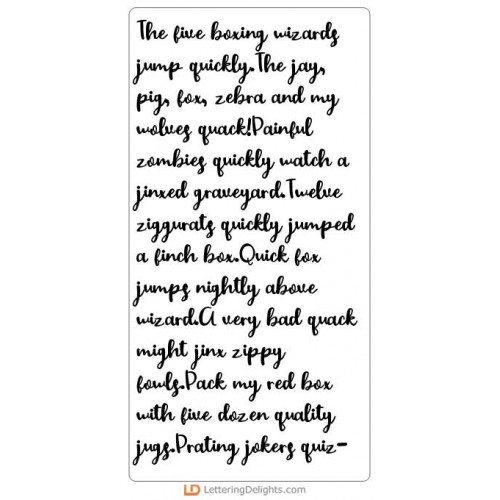 The five boxing wizards
jump quickly.The jay,
pig, fox, zebra and my
wolves quack!Painful
zombies quickly watch a
jinxed graveyard.Twelve
ziggurats quickly jumped
a finch box.Quick fox
jumps nightly above
wizard.A very bad quack
might jinx zippy
fowls.Pack my red box
with five dozen quality
jugs.Prating jokers quiz-
LD LetteringDelights.com